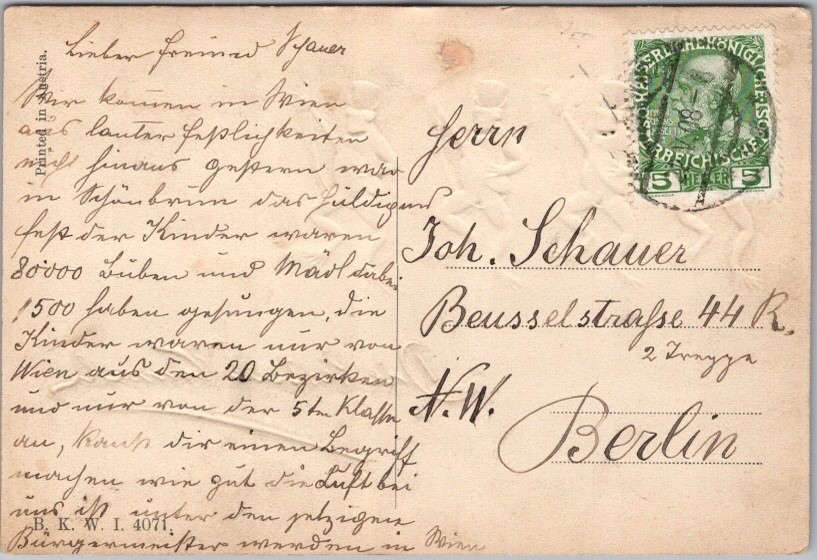 Printed in Austria.
Lieber Freund Schauer
Wir komen in Wien
aus lauter Festlichkeiten
nicht hinaus gestern war
in Schönbrun das Huldigungs
fest der Kinder waren
80000 Buben und Mädl dabei
1500 haben gesungen, die
Kinder waren nur von
Wien aus den 20 Bezirken
und nur von der 5ten Klasse
an, kanst dir einen Begriff
machen wie gut die Luft bei
uns ist unter den jetzigen
Bürgermeister werden in Wien
B. K. W. I. 4071.
Herrn
Joh. Schauer
Beusselstraße 44 R.
2 Treppe
N.W.
Berlin
KAISERLICHE KÖNIGLICHE
ÖSTERREICHISCHE
5 HELLER 5